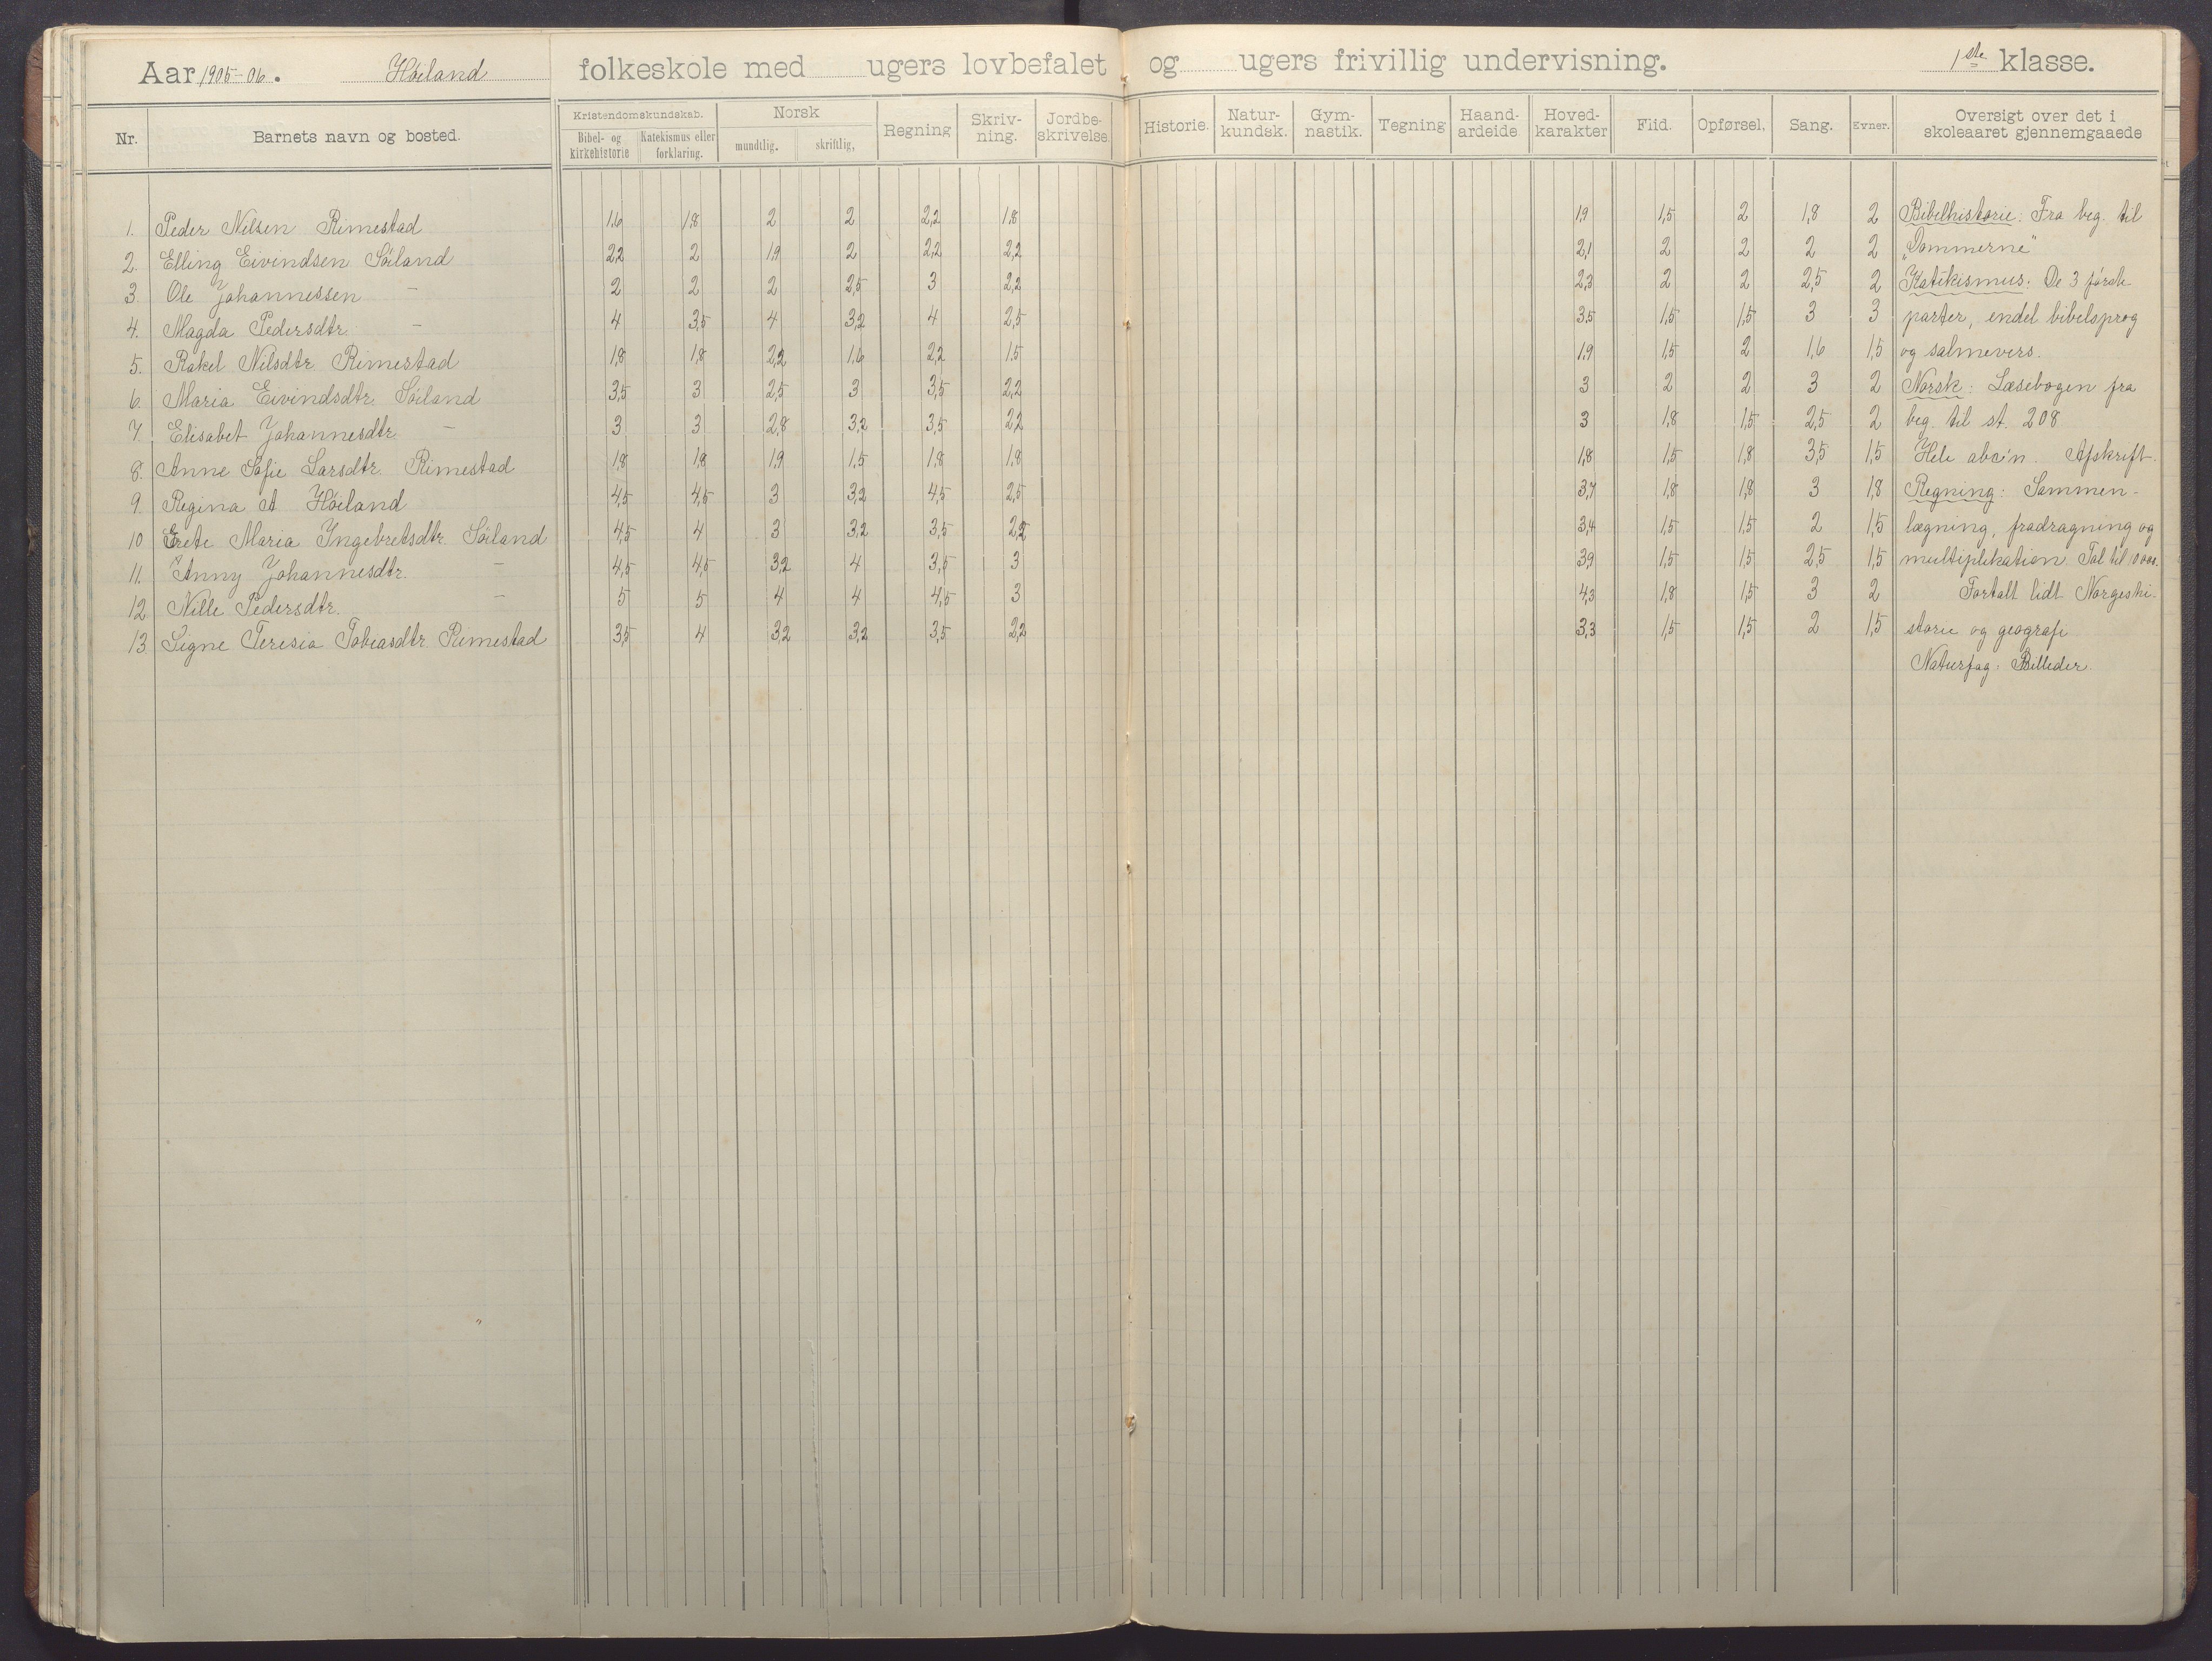 Aar 1905-06. Höiland folkeskole med ugers lovbefalet og ugers frivillig undervisning. 1ste klasse.
Nr. Barnets navn og bosted. Kristendomskundskab. Bibel- og kirkehistorie Katekismus eller forklaring. Norsk mundtlig. skriftlig, Regning Skriv-ning. Jordbe-skrivelse. Historie. Natur-kundsk. Gym-nastik. Tegning Haand-ardeide Hoved-karakter Flid. Opførsel. Sang. Evner. Oversigt over det i skoleaaret gjennemgaaede
1. Peder Nilsen Rimestad 1,6 1,8 2 2 2,2 1,8 1,9 1,5 2 1,8 2 Bibelhistorie: Fra beg. til
2. Elling Eivindsen Söiland 2,2 2 1,9 2 2,2 2,2 2,1 2 2 2 2 „Dommerne"
3. Ole Johannessen - 2 2 2 2,5 3 2,2 2,3 2 2 2,5 2 Katekismus: De 3 første
4. Magda Pedersdtr. - 4 3,5 4 3,2 4 2,5 3,5 1,5 1,5 3 3 parter, endel bibelsprog
5. Rakel Nilsdtr. Rimestad 1,8 1,8 2,2 1,6 2,2 1,5 1,9 1,5 2 1,6 1,5 og salmevers.
6. Maria Eivindsdtr. Söiland 3,5 3 2,5 3 3,5 2,2 3 2 2 3 2 Norsk: Læsebogen fra
7. Elisabet Johannesdtr. - 3 3 2,8 3,2 3,5 2,2 3 1,8 1,5 2,5 2 beg. til st. 208
8. Anne Sofie Larsdtr. Rimestad 1,8 1,8 1,9 1,5 1,8 1,8 1,8 1,5 1,8 3,5 1,5 Hele abc'n. Afskrift.
9. Regina A Höiland 4,5 4,5 3 3,2 4,5 2,5 3,7 1,8 1,8 3 1,8 Regning: Sammen-
10 Grete Maria Ingebretsdtr. Söiland 4,5 4 3 3,2 3,5 2,2 3,4 1,5 1,5 2 1,5 lægning, fradragning og
11. Anny Johannesdtr. - 4,5 4,5 3,2 4 3,5 3 3,9 1,5 1,5 2,5 1,5 multiplikation Tal til 10000.
12 Nille Pedersdtr. - 5 5 4 4 4,5 3 4,3 1,8 1,5 3 2 Fortalt lidt Norgeshi-
13. Signe Teresia Tobiasdtr. Rimestad 3,5 4 3,2 3,2 3,5 2,2 3,3 1,5 1,5 2 1,5 storie og geografi
Naturfag: Billeder.